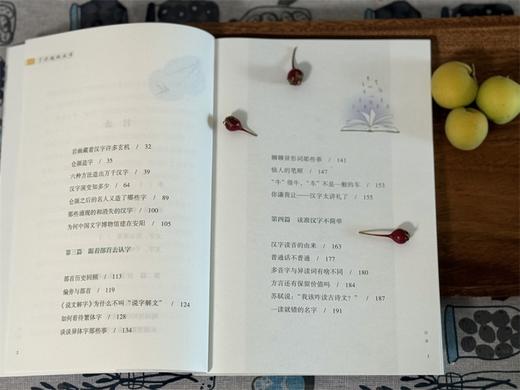 岩画藏着汉字许多玄机 / 32
仓颉造字 / 35
六种方法造出万千汉字 / 39
汉字演变知多少 / 64
仓颉之后的名人又造了哪些字 / 89
那些通规的和消失的汉字 / 100
为何中国文字博物馆建在安阳 / 105
第三篇 跟着部首去认字
部首历史回顾 / 113
偏旁与部首 / 119
《说文解字》为什么不叫“说字解文” / 124
如何看待繁体字 / 128
谈谈异体字那些事 / 134
2
聊聊异形词那些事 / 141
恼人的笔顺 / 147
“牛”很牛,“车”不是一般的车 / 153
你谦我让——汉字太讲礼了 / 155
第四篇 读准汉字不简单
汉字读音的由来 / 163
普通话不普通 / 177
多音字与异读词有啥不同 / 180
方言还有保留价值吗 / 184
苏轼说:“我该咋读古诗文?” / 187
一读就错的名字 / 191